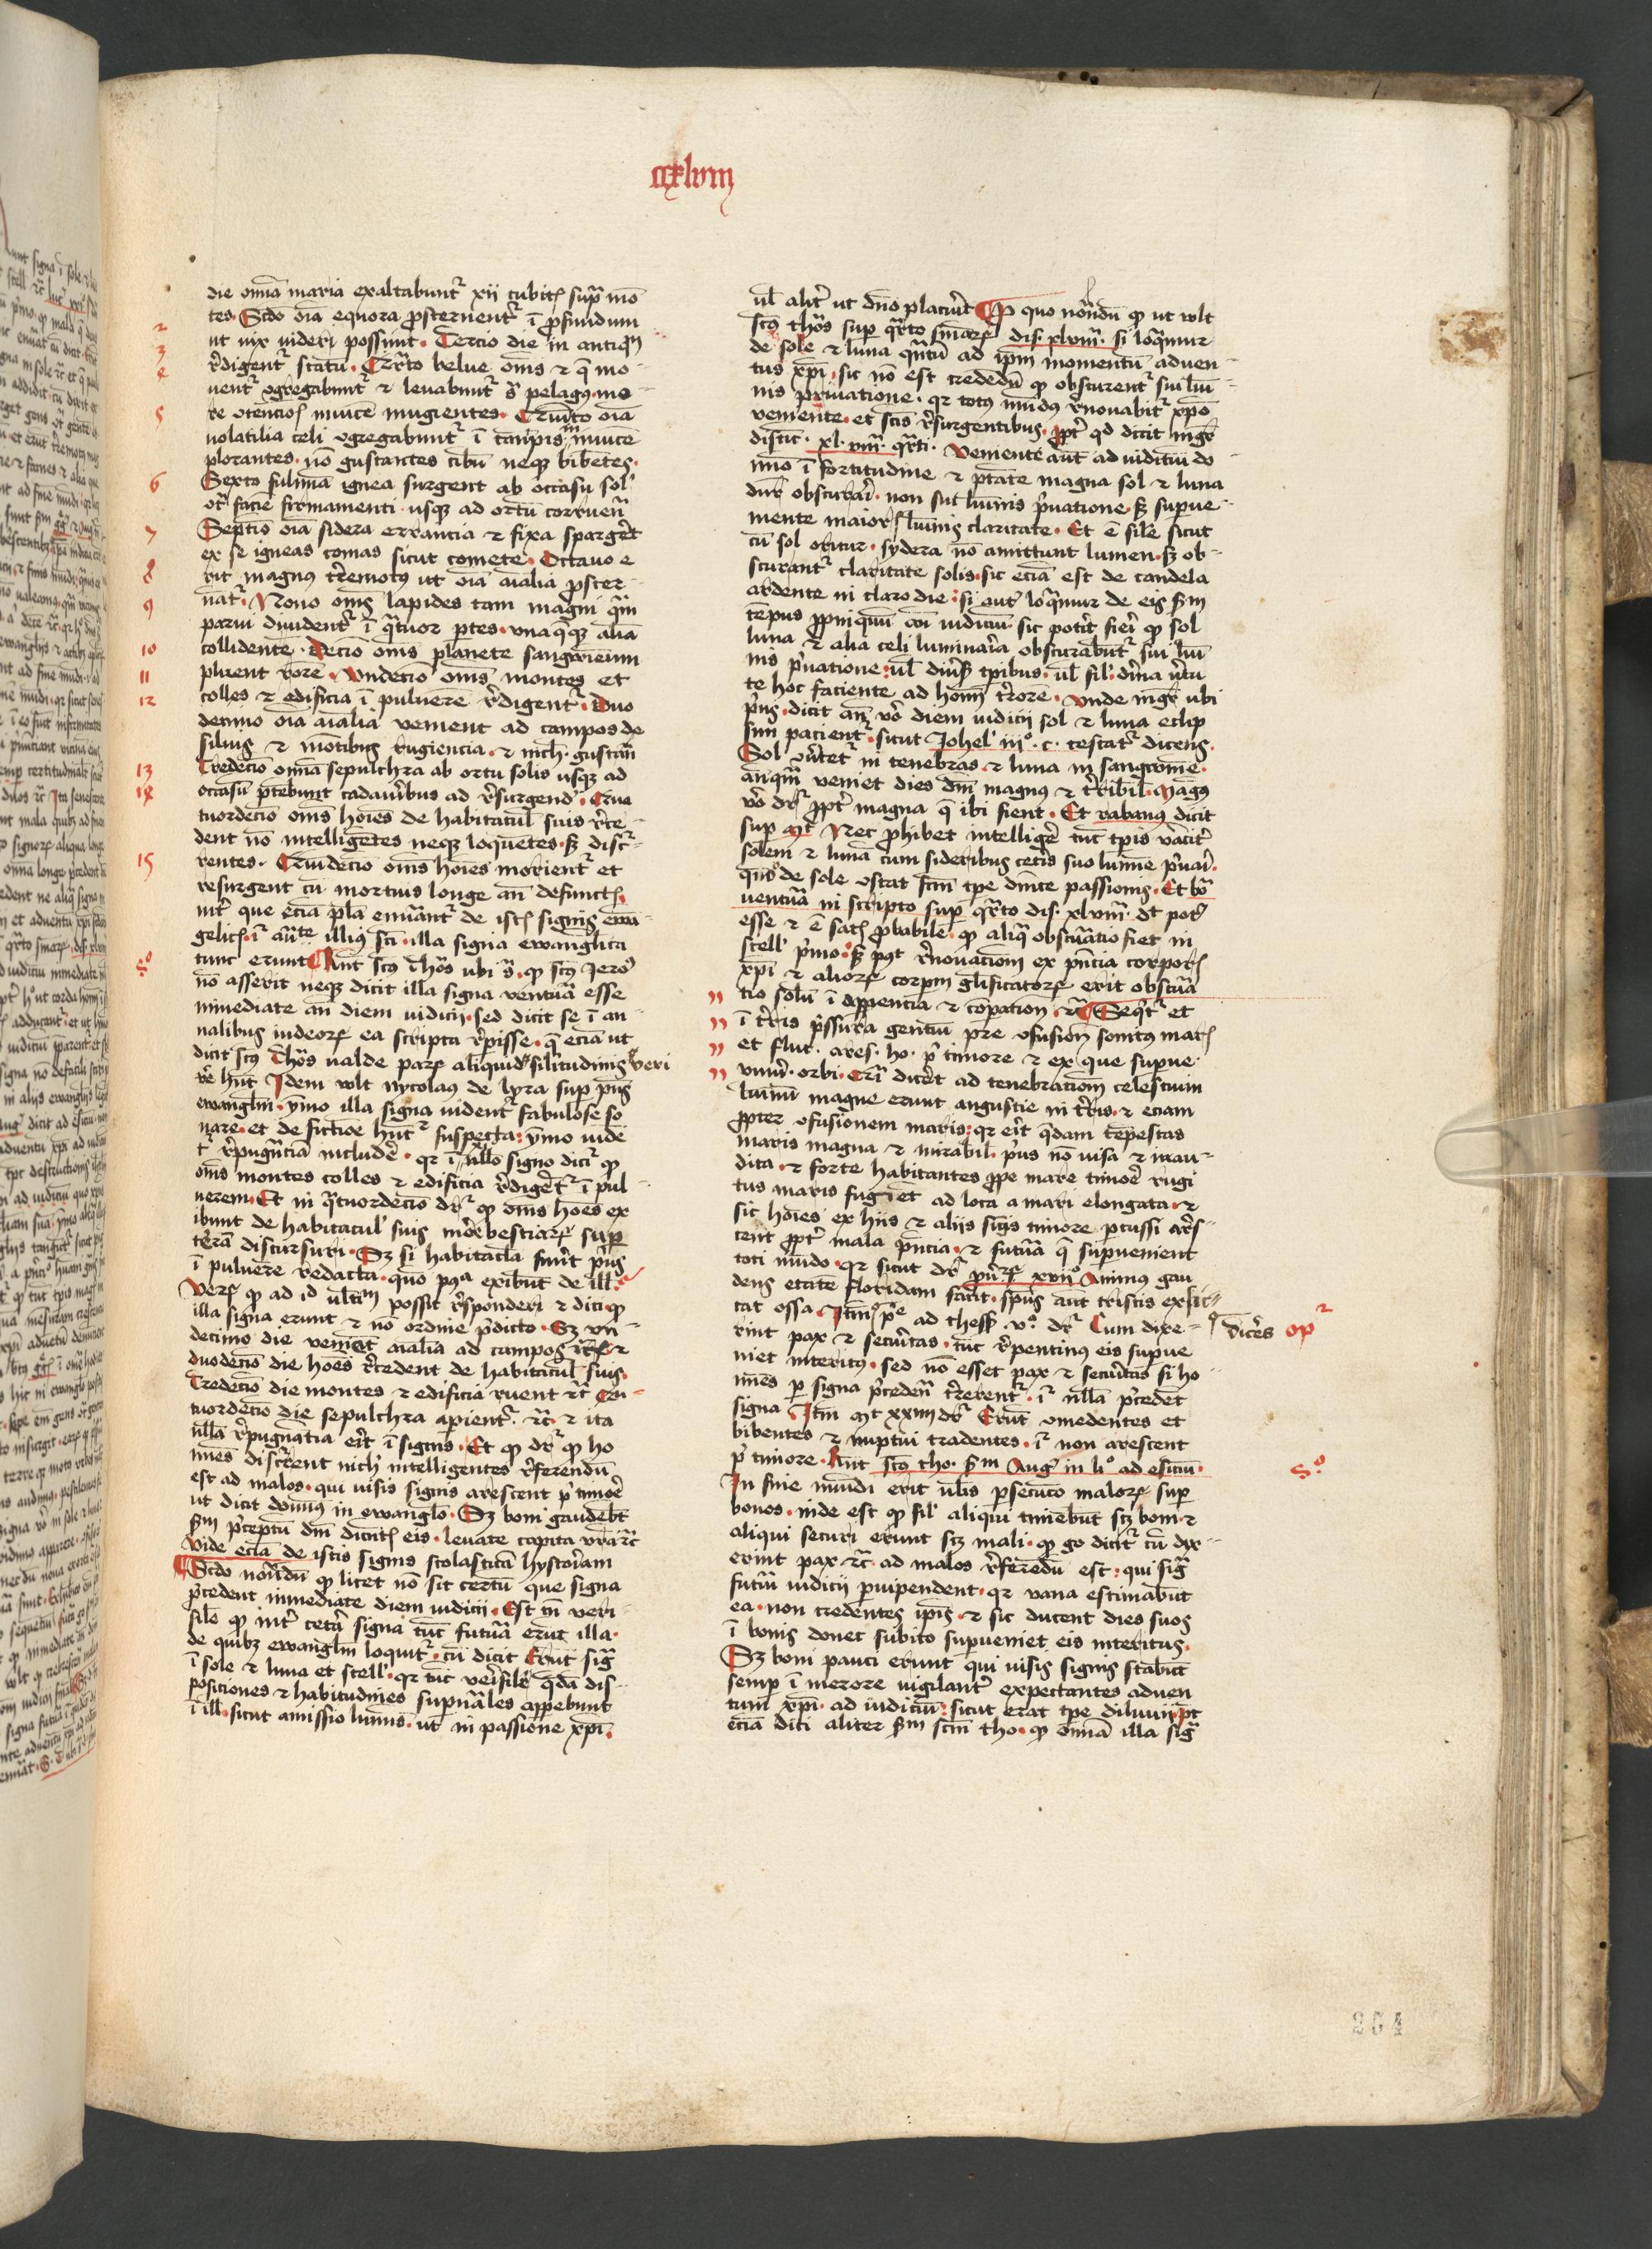 ccxlviij
die om̄ia maria exaltabunt᷑ xij cubit᷑ supra mō
tes. Scd̄o oīa equora ꝓsternent᷑ ī ꝓfundum
ut vix videri possunt. Tercio die in antiqm̄
r̄digent᷑ statū. Qrto belue om̄s et q̄ mo
uent᷑ ꝯgregabunt᷑ et leuabunt᷑ s̄r pelagus mo
re ꝯtencioſ inuicē mugientes. Quīto oīa
volatilia celi ꝯgregabunt᷑ ī campis inuicē
plorantes. nō gustantes cibū neqꝫ bibētes.
Sexto fulmīa ignea surgent ab occasu sol᷑
ꝯtra faciē firmamenti usqꝫ ad ortū corruen̄
Septīo oīa sidera errancia et fixa sparget
ex se igneas comas sicut comete. Octauo e
rit magnus t̄remotus ut oīa aīalia ꝓster
nāt᷑. Nono om̄s lapides tam magni q̄m
parui diuident᷑ ī q̄tuor ꝑtes. vna q̄qꝫ aliā
collidente. Decīo om̄s planete sangwineum
pluent rorē. Vndecīo om̄s montes et
colles et edificia ī puluerē r̄digent᷑. Duo
decimo oīa aīalia venient ad campos de
siluis et mōtibus rugiencia. et nich᷑ gustan̄
Tredecīo om̄ia sepulchra ab ortu solis usqꝫ ad
occasū patebunt cadaūibus ad r̄surgend᷑. Qua
tuordecīo om̄s hoīes de habitacul᷑ suis r̄ce
dent nō intelligētes neqꝫ loquētes. sꝫ discr
rentes. Quīdecīo om̄s hoīes morient᷑ et
resurgent cū mortuis longe an̄ defunct᷑.
int᷑ que eciā pl̄a enūant᷑ de ist᷑ signis ewā
gelic᷑. ī aūte illius sc̄i. illa signa ewanglica
tunc erunt Ad̄it sc̄us thōs ubi s̄. ꝙ sc̄us Jero᷑
nō asserit neqꝫ dicit illa signa ventura esse
inmediate an̄ diem iudicij. sed dicit se ī an
nalibus iudeoꝝ ea scripta r̄pisse. q̄ eciā ut
dicit sc̄us thōs valde paꝝ aliquid᷑ silitudinis veri
t̄e hn̄t Idem vult nycolaus de lyra sup pn̄s
ewangliū. ymo illa signa vident᷑ fabulose so
nare. et de fictioe hn̄t᷑ suspecta. ymo vide
t᷑ r̄pugnanciā includē. qr ī vllo signo dicit᷑ ꝙ
om̄s montes colles et edificia r̄digēt᷑ ī pul
uerem. Et in q̄tuordecīo dr̄ ꝙ om̄s hoēs ex
ibunt de habitacul᷑ suis more bestiaꝝ sup
terā discursuri. Sꝫ si habitacl̄a sunt pri᷑
ī puluerē redacta. quō pꝯa exibunt de ill᷑
Veꝝ ꝙ ad id vltim possit r̄sponderi et dici ꝙ
illa signa erunt et nō ordine p̄dicto. Sꝫ vn
decimo die veniēt aīalia ad campos et
duodecīo die hoēs r̄cedent de habitacul᷑ suis.
Tredecīo die montes et edificia ruent et᷑c Qua
tuordecīo die sepulchra apient᷑. et᷑c. et ita
nlla r̄pugnātia erit ī signis. Et ꝙ dr̄ ꝙ ho
mīes discrrent nich᷑ intelligentes r̄ferendū
est ad malos. qui visis signis arescent p̄ timoē
ut dicit dominus in ewanglō. Sꝫ boni gaudebt
scd̄m p̄ceptū dn̄i dicent᷑ eis. leuate capita vr̄a et᷑c
Vide eciā de istis signis scolasticā hystoriam
Scd̄o notandū ꝙ licet nō sit certū que signa
p̄cedent inmediate diem iudicij. Est tn̄ veri
sile ꝙ int᷑ cetera signa tūc futura erūt illa.
de quibꝫ ewangliū loquit᷑. cū dicit Erūt sig᷑
ī sole et luna et stell᷑. qr tūc verisile q̄dā dis
positiones et habitudines supnāles apꝑebunt
ī ill᷑. sicut amissio luīnis. ut in passione xp̄i.
2
3
4
5
6
7
8
9
10
11
12
13
14
15
so
vl᷑ alit᷑ ut dn̄o placuit Pro quo notandū ꝙ ut vult
sc̄us thōs sup qrto sn̄iaꝝ dis. xlviij. si loq̄mur
de sole et luna quātū ad ip̄m momentū aduen
tus xp̄i. sic nō est credēdū ꝙ obscurent᷑ sui lū
nis priuatione. qr totus mūdus r̄nouabit᷑ xp̄o
veniente. et sc̄is r̄surgentibus. ꝓpt᷑ qd dicit mgr
distinc. xl. viij. qrti. Veniente aūt ad iudiciū do
mīo ī fortitudine et ptāte magna sol et luna
dn̄r obscurari. non sui luīnis p̄uatione sꝫ supue
niente maioris luīnis claritate. Et ē sile sicut
cū sol oritur. sydera nō amittunt lumen. sꝫ ob
scurant᷑ claritate solis. sic eciā est de candela
ardente in claro die. si aut᷑ loq̄mur de eis scd̄m
tēpus ꝓpinquū añ iudiciū. sic poterit fieri ꝙ sol
luna et alia celi luminaria obscurabūt᷑ sui lū
nis p̄uatione. vl᷑ diūsꝫ tp̄ibus. vl᷑ sil᷑. dīna virtu
te hoc faciente ad hom̄i t̄rorē. Vnde mgr̄ ubi
pri᷑. dicit an̄ vō diem iudicij sol et luna eclip
sim pacient᷑. sicut Johel᷑ iijo. c. testat᷑ dicens.
Sol vertet᷑ in tenebras. et luna in sangwinē.
an̄qm̄ veniet dies dn̄i magnus et t̄ribil᷑. Magn᷑
vō dr̄ ꝓpt᷑ magna q̄ ibi fient. Et rabanus dicit
sup mt̄ Nec ꝓhibet intelligē tūc tp̄is veracit᷑
solem et lunā cum sideribus cet̄is suo lumīe p̄uari.
quō de sole ꝯstat fc̄m tp̄e dn̄ice passionis. Et bo
nauentura in scripto sup qrto dis. xlviij. dt pot᷑
esse et ē sat᷑ ꝓbabile. ꝙ aliq̄ obscuratio fiet in
stell᷑ p̄mo. sꝫ pꝰt r̄nouationem ex pn̄cia corpor᷑
xp̄i et alioꝝ corpoꝝ glificatoꝝ erit obscura
tio solū ī apparentia et compation᷑ et᷑c Seqt᷑ et
ī t̄ris p̄ssura gentiū pre ꝯfusion᷑ sonitus mar᷑
et fluc. ares. ho. p̄ timore et ex. que supue.
vniu᷑. orbi. Qr̄ dicēt ad tenebrationem celestium
luīnū magne erunt angustie in t̄ris. et eciam
propter ꝯfusionem maris. qr erit q̄dam tēpestas
maris magna et mirabil᷑. prius nō visa et inau
dita. et forte habitantes ꝓpe mare timoē rugi
tus maris fugiēt ad loca a mari elongata. et
sic hoīes ex hiis et aliis signis timore ꝑcussi ares
cent ꝓpt᷑ mala pn̄cia. et futura q̄ supuenient
toti mūdo. qr sicut dr̄ ꝓuerꝝ xvijo Animus gau
dens etatē floridam facit. spūs aūt tristis exsic
cat ossa. Itm̄ pe ad thess᷑ vo. dr̄ Cum dixe
rint pax et securitas. tūc r̄pentinus eis supue
niet interitus. sed nō esset pax et securitas si ho
mīes ꝑ signa p̄cedenā t̄rerent᷑. ī nulla p̄cedēt
signa. Itm̄ mt̄ xxiiij dr̄ Erūt ꝯmedentes et
bibentes et nuptui tradentes. ī non arescent
p̄ timore. Ad̄it sc̄us tho. scd̄m Aug᷑ in lio ad esiciū.
In fine mūdi erit vl̄is ꝑsecucō maloꝝ sup
bonos. inde est ꝙ sil᷑ aliqui timēbūt scꝫ boni. et
aliqui securi erunt scꝫ mali. ꝙ gͦ dicit᷑ cū dix
erint pax et᷑c. ad malos r̄ferēdū est. qui sig᷑
futuri iudicij ꝑuipendent. qr vana estimabūt
ea. non credentes ip̄is. et sic ducent dies suos
ī bonis donec subito supueniet eis interitus.
Sꝫ boni pauci erunt qui visis signis stabūt
semp ī merore vigilant᷑ expectantes aduen
tum xp̄i. ad iudiciū. sicut erat tp̄e diluuij pt
eciā dici aliter scd̄m sc̄m tho. ꝙ om̄ia illa sig᷑
diceres op
so
264